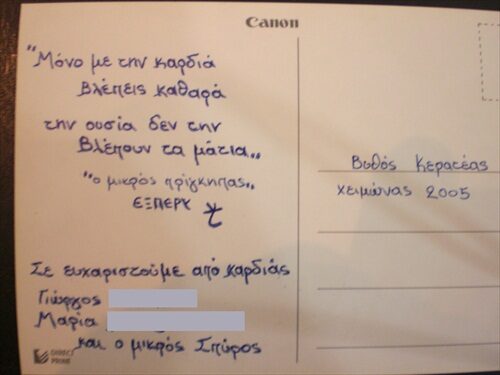 Canon
"Μόνο με την καρδιά
βλέπεις καθαρά
την ουσία δεν την
βλέπουν τα μάτια„
"ο μικρός πρίγκηπας„
ΕΞΠΕΡΥ
Σε ευχαριστούμε από καρδιάς
Γιώργος
Μαρία
και ο μικρός Σπύρος
DIRECT
PRINT
Βυθός Κερατέας
χειμώνας 2005